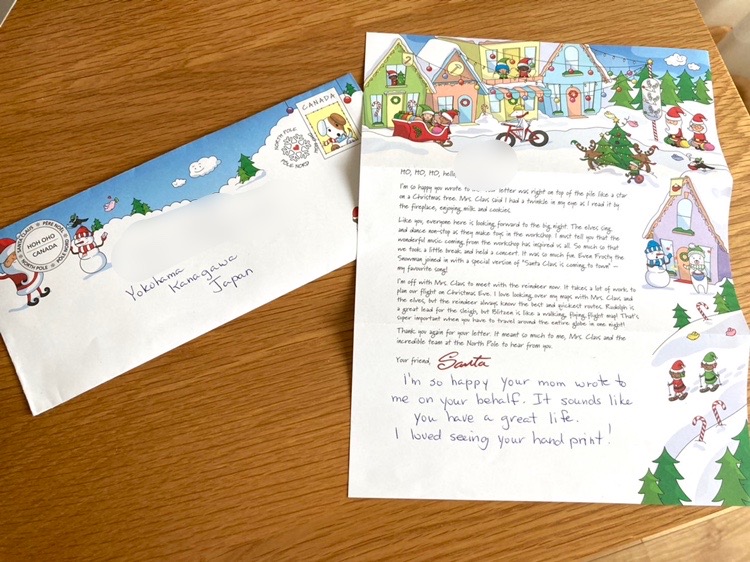 SANTA CLAUS • PÈRE NOËL
HOH OHO
CANADA
NORTH POLE • PÔLE NORD
NORTH POLE
PÔLE NORD
HOH OHO
CANADA
Yokohama
Kanagawa
Japan
HO, HO, HO, hello,
I'm so happy you wrote to letter was right on top of the pile like a star
on a Christmas tree. Mrs. Claus said I had a twinkle in my eye as I read it by
the fireplace, enjoying milk and cookies.
Like you, everyone here is looking forward to the big night. The elves sing
and dance non-stop as they make toys in the workshop. I must tell you that the
wonderful music coming from the workshop has inspired us all. So much so that
we took a little break and held a concert. It was so much fun. Even Frosty the
Snowman joined in with a special version of "Santa Claus is coming to town" –
my favourite song!
I'm off with Mrs. Claus to meet with the reindeer now. It takes a lot of work to
plan our flight on Christmas Eve. I love looking over my maps with Mrs. Claus and
the elves, but the reindeer always know the best and quickest routes. Rudolph is
a great lead for the sleigh, but Blitzen is like a walking, flying flight map! That's
super important when you have to travel around the entire globe in one night!
Thank you again for your letter. It meant so much to me, Mrs. Claus and the
incredible team at the North Pole to hear from you.
Your friend, Santa
I'm so happy your mom wrote to
me on your behalf. It sounds like
you have a great life.
I loved seeing your hand print!